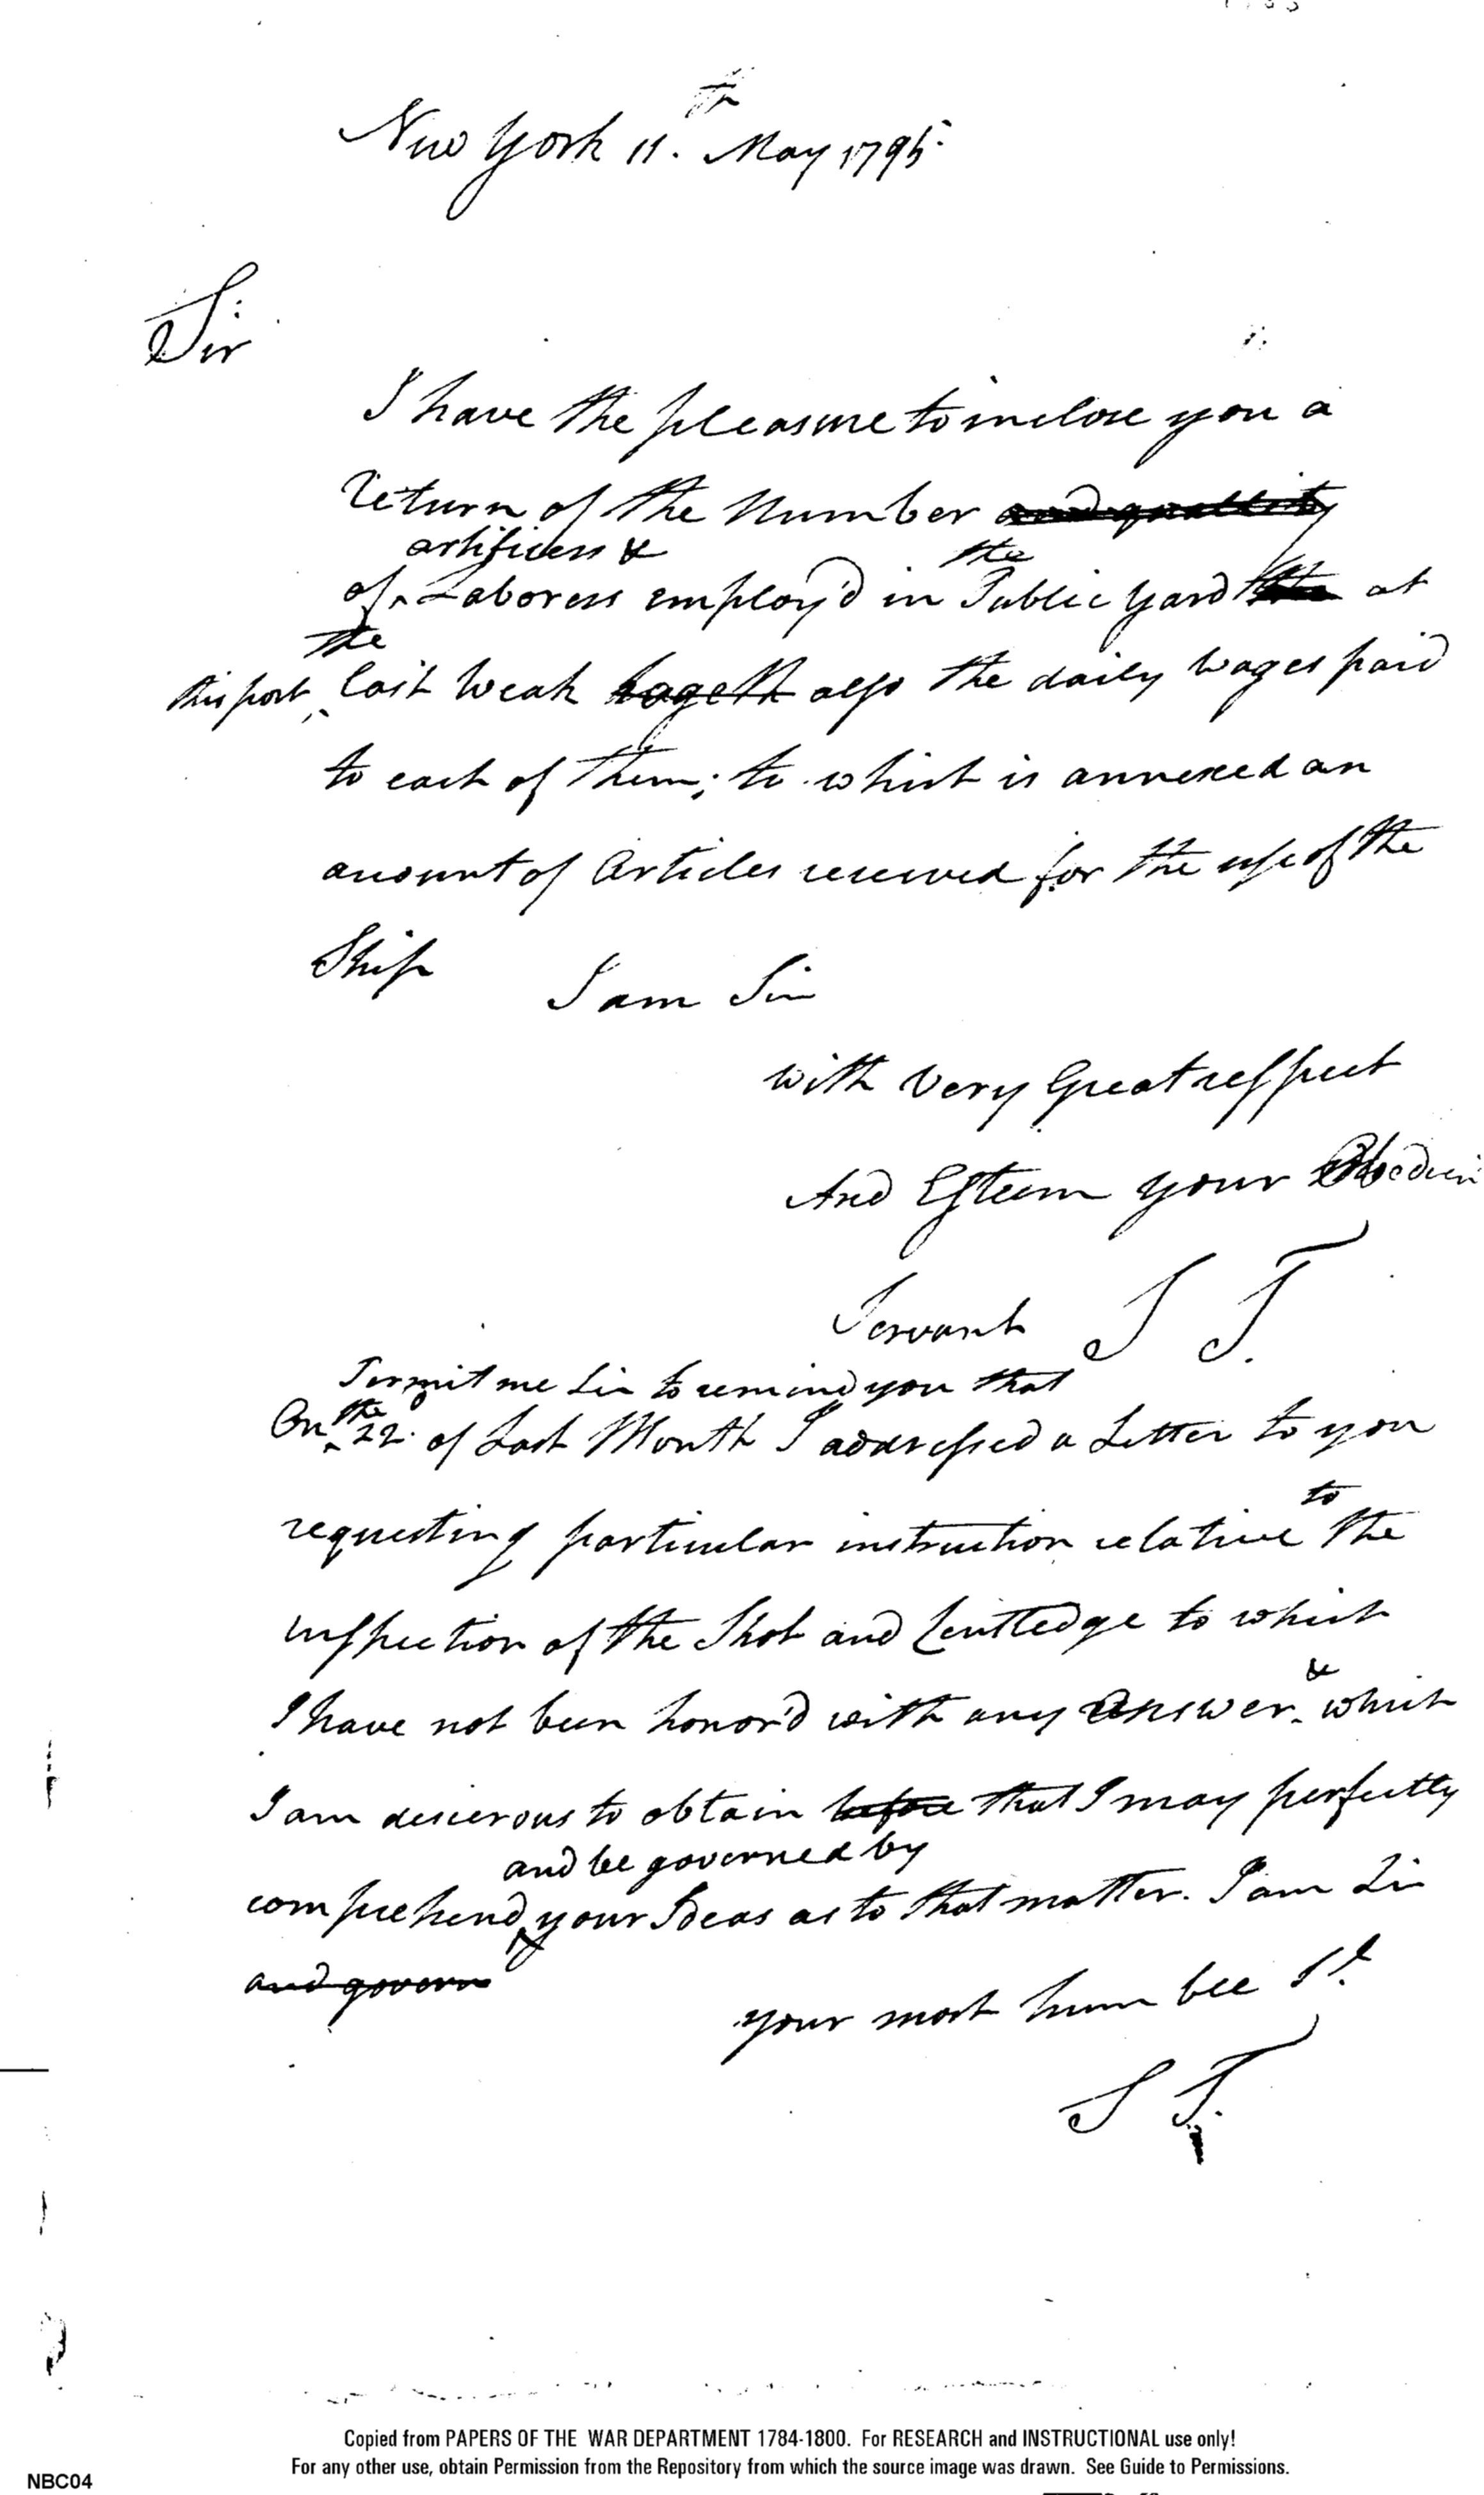 New York 11.th May 1795.
Sir
I have the pleasure to inclose you a
return of the Number and quallity
artificers & the
of Laborers employ'd in Public Yard the at
the
this port, last Weak togeth also the daily wages paid
to each of them; to which is annexed an
account of Articles received for the use of the
Ship
I am Sir
with Very Great respect
And Esteem your Obedien
Servant S T.
Permit me Sir to remind you that
the
On 22. of Last Month I addressed a Letter to you
to
requesting particular instruction relative the
inspection of the Shot and Kentledge to which
&
I have not been honor'd with any Answer. which
I am desierous to obtain before that I may perfectly
and be governed by
comprehend your Ideas as to that matter. I am Sir
and govern
your most hum ble St.
S T.
Copied from PAPERS OF THE WAR DEPARTMENT 1784-1800. For RESEARCH and INSTRUCTIONAL use only!
For any other use, obtain Permission from the Repository from which the source image was drawn. See Guide to Permissions.
NBC04